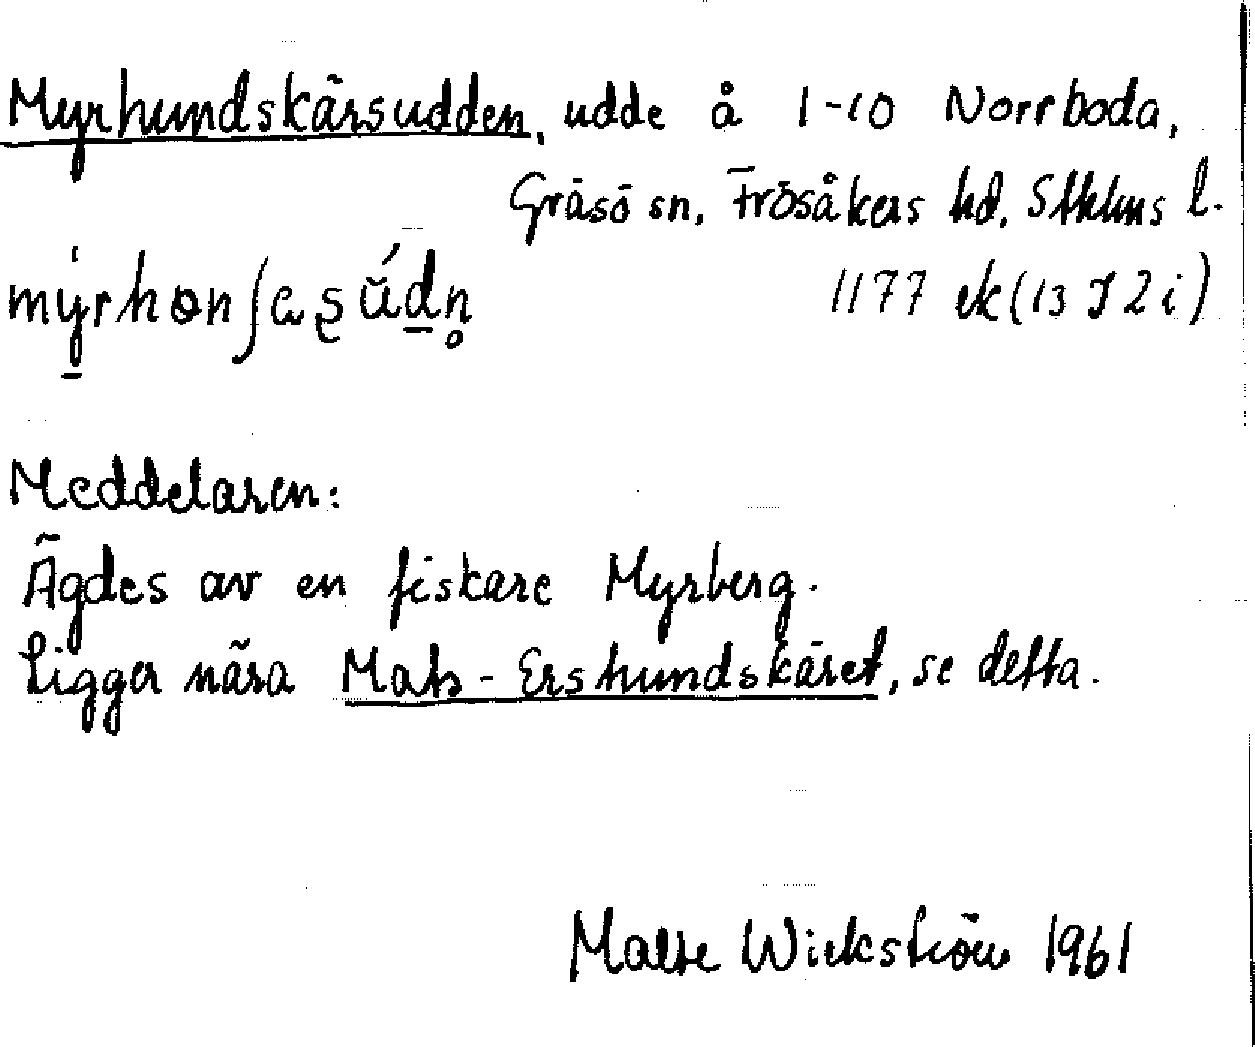 Myrhundskärsudden, udde å 1-10 Norrboda,
Gräsö sn, Frösåkers hd, Sthlms l.
1177 ek (13 I 2 i)
Meddelaren:
Ägdes av en fiskare Myrberg.
Ligger nära Mats-Ershundskäret, se detta.
Malte Wickström 1961